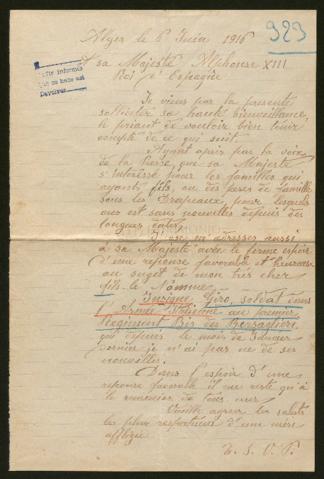 Alger le 6 Juin 1916
323
A sa Majesté Alphonse XIII
Roi d'Espagne
Je viens par la présente
solliciter sa haute bienveillance,
le priant de vouloir bien tenir
compte de ce qui suit.
Ayant appris par la voix
de la Presse, que sa Majesté
s'intéresse pour les familles qui
ayants fils, ou des pères de famille
sous les Drapeaux, pour lesquels
on est sans nouvelles depuis de
longues dates
Je m'adresses aussi
à sa Majesté avec le ferme espoir
d'une réponse favorable et heureuse
au sujet de mon très cher
fils le Nommé
soldat dans
l'Armée Italienne au premier
Régiment Bis des Bersagliers
qui depuis le mois de Janvier
je n'ai pas eu de ses
nouvelles.
Dans l'espoir d'une
réponse favorable il me reste qu'à
le remercier de tout
Veuillez agréer les saluts
les plus respectueux d'une mère
affligée
T. S. V. P.